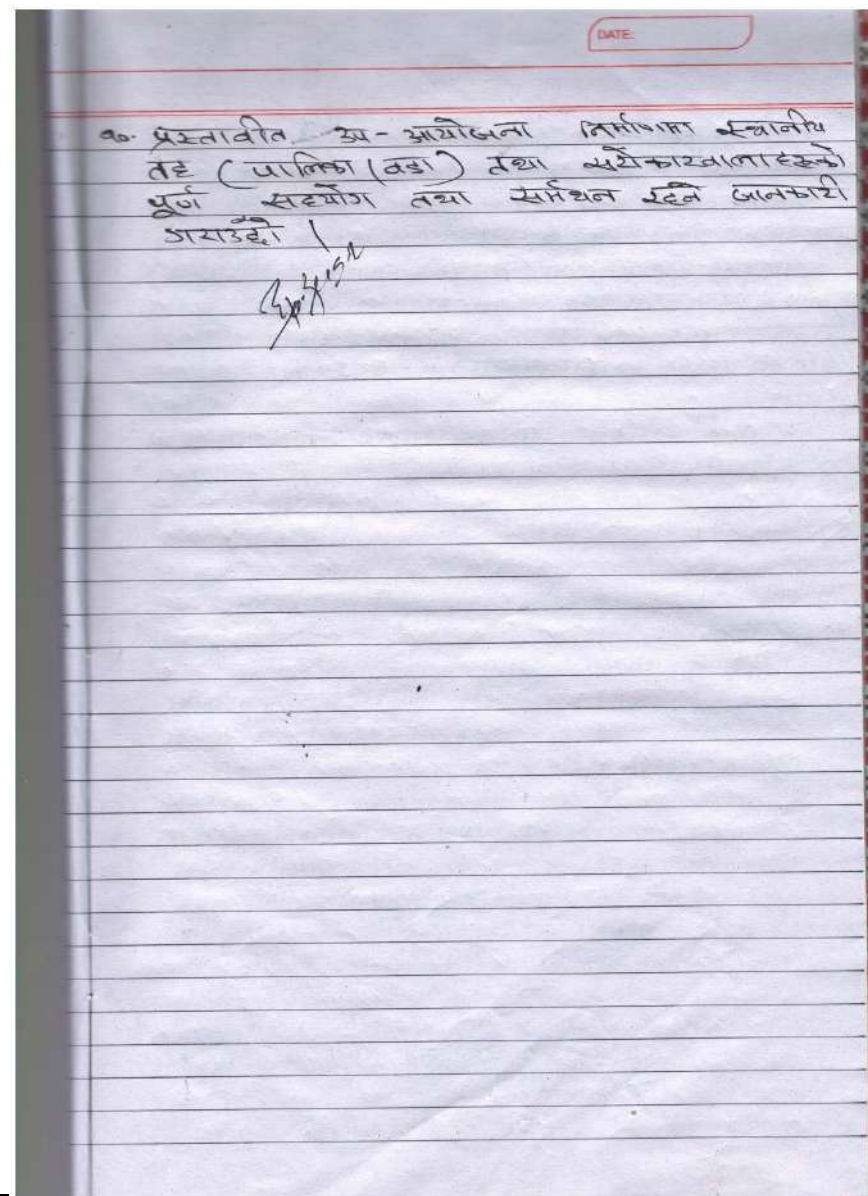 DATE:
१०. प्रस्तावीत उप-आयोजना निर्माणमा स्थानीय
तह (पालिका (वडा) तथा सरोकारवालाहरूको
पूर्ण सहयोग तथा सर्मथन रहने जानकारी
गराउँछौ ।